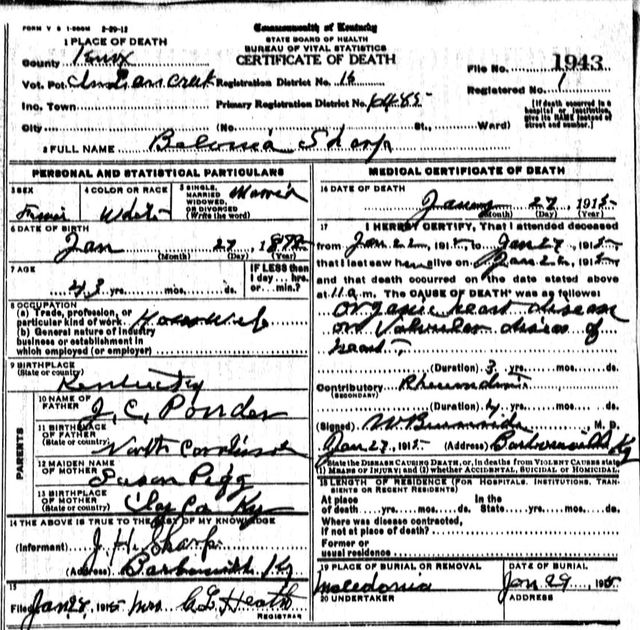 FORM V S 1-500M 2-29-12
Commonwealth of Kentucky
STATE BOARD OF HEALTH
BUREAU OF VITAL STATISTICS
CERTIFICATE OF DEATH
1 PLACE OF DEATH
County Knox
Vot. Pct. Indian Creek Registration District No. 16
Inc. Town Primary Registration District No.
City (No. St., Ward)
File No. 1943
Registered No. 1
[If death occurred in a hospital or institution, give its NAME instead of street and number.]
2 FULL NAME Sharp
PERSONAL AND STATISTICAL PARTICULARS
3 SEX
4 COLOR OR RACE White
5 SINGLE, MARRIED WIDOWED, OR DIVORCED (Write the word) Married
6 DATE OF BIRTH
Jan 27, 1872
(Month) (Day) (Year)
7 AGE
43 yrs. mos. ds.
IF LESS than 1 day... hrs. or... min.?
8 OCCUPATION
(a) Trade, profession, or particular kind of work House Wife
(b) General nature of industry business or establishment in which employed (or employer)
9 BIRTHPLACE
(State or country) Kentucky
PARENTS
10 NAME OF FATHER J. C. Ponder
11 BIRTHPLACE OF FATHER (State or country) North Carolina
12 MAIDEN NAME OF MOTHER Susan Pigg
13 BIRTHPLACE OF MOTHER (State or country) Clay Co Ky
14 THE ABOVE IS TRUE TO THE BEST OF MY KNOWLEDGE
(Informant) J. H. Sharp
(Address) Barbourville Ky
15
Filed Jan 28, 1915 Mrs. G L Heath
REGISTRAR
MEDICAL CERTIFICATE OF DEATH
16 DATE OF DEATH
January 27, 1915
(Month) (Day) (Year)
17 I HEREBY CERTIFY, That I attended deceased
from Jan 22, 1915 to Jan 27, 1915
that I last saw her alive on Jan 22, 1915
and that death occurred on the date stated above
at 11 a.m. The CAUSE OF DEATH was as follows:
Organic heart disease
or Valvular disease of
heart
(Duration) 3 yrs. mos. ds.
Contributory Rheumatism
(SECONDARY)
(Duration) yrs. mos. ds.
(Signed) W Burnside M. D.
Jan 27, 1915 (Address) Barbourville Ky
State the DISEASE CAUSING DEATH, or, in deaths from VIOLENT CAUSES state (1) MEANS OF INJURY; and (2) whether ACCIDENTAL, SUICIDAL OR HOMICIDAL.
18 LENGTH OF RESIDENCE (FOR HOSPITALS, INSTITUTIONS, TRANSIENTS OR RECENT RESIDENTS)
At place of death yrs. mos. ds. In the State yrs. mos. ds.
Where was disease contracted, if not at place of death?
Former or usual residence
19 PLACE OF BURIAL OR REMOVAL Macedonia
DATE OF BURIAL Jan 29, 1915
20 UNDERTAKER
ADDRESS